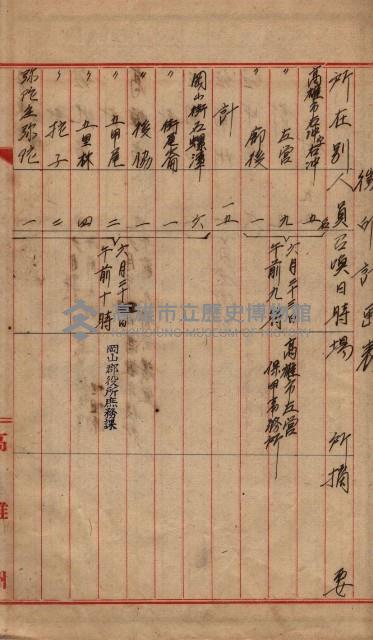 所在別 人員 召喚日時 場所 摘要
高雄市右冲 右冲 五名
〃 左營 九
〃 廍後 一
計 一五
六月二十三日
午前九時
高雄市左營
保甲事務所
岡山街石螺潭 六
〃 街尾崙 一
〃 後協 一
〃 五甲尾 二
〃 五里林 四
〃 挖子 二
弥陀庄弥陀 一
午前十時
岡山郡役所庶務課
高雄州
高雄市立歷史博物館
KAOHSIUNG MUSEUM OF HISTORY